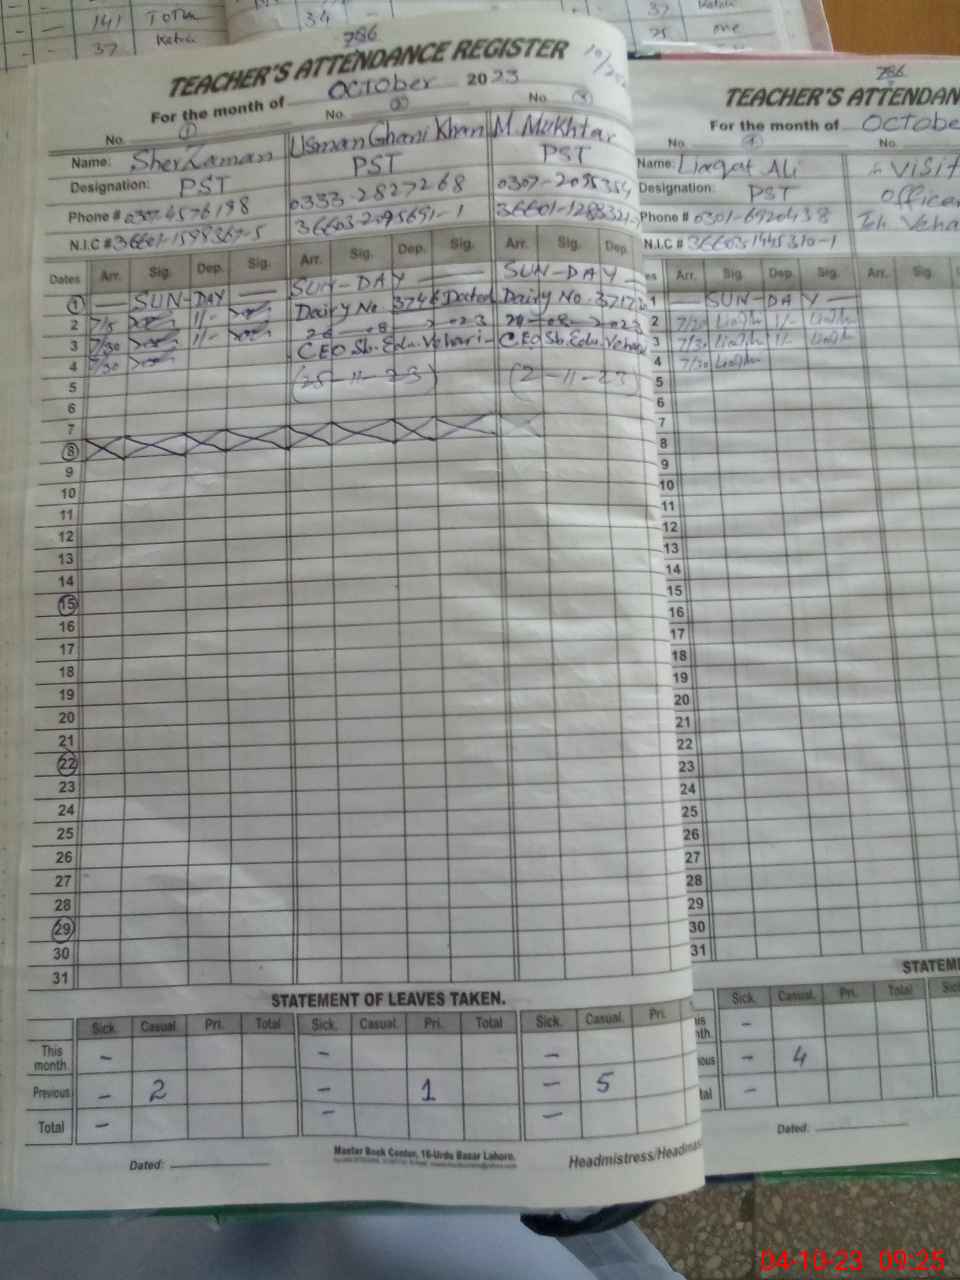 141 TOTAL 34 37
37 Katchi 25 one
786
TEACHER'S ATTENDANCE REGISTER
For the month of October 2023
No. 1 No. 2 No. 3
Name: Sher Zaman Usman Ghani Khan M. Mukhtar
Designation: PST PST PST
Phone # 0333-2827268
N.I.C #
Dates Arr. Sig. Dep. Sig. Arr. Sig. Dep. Sig. Arr. Sig. Dep.
1 — SUN-DAY — SUN-DAY — SUN-DAY —
2 11- Dairy No. Dated Dairy No.
3 7/30 11- 08-2023 08-2023
4 7/30 CEO Sb. Edu. Vehari- CEO Sb. Edu. Vehari
5 (25-11-23) (2-11-23)
6
7
8
9
10
11
12
13
14
15
16
17
18
19
20
21
22
23
24
25
26
27
28
29
30
31
STATEMENT OF LEAVES TAKEN.
Sick. Casual. Pri. Total Sick. Casual. Pri. Total Sick. Casual. Pri.
This month. — — —
Previous — 2 — 1 — 5
Total — — —
Dated:
Master Book Center, 16-Urdu Bazar Lahore.
Headmistress/Headmas
786
TEACHER'S ATTENDAN
For the month of Octobe
No. 4 No.
Name: Liaqat Ali Visit
Designation: PST Officer
Phone # 0301-6920438 Teh. Veha
N.I.C # 36603-1445310-1
es Arr. Sig. Dep. Sig. Arr. Sig.
1 — SUN-DAY —
2 7/30 11-
3 7/30 11-
4 7/30
5
6
7
8
9
10
11
12
13
14
15
16
17
18
19
20
21
22
23
24
25
26
27
28
29
30
31
STATEM
Sick. Casual. Pri. Total Sic
—
ious — 4
tal —
Dated:
04-10-23 09:25